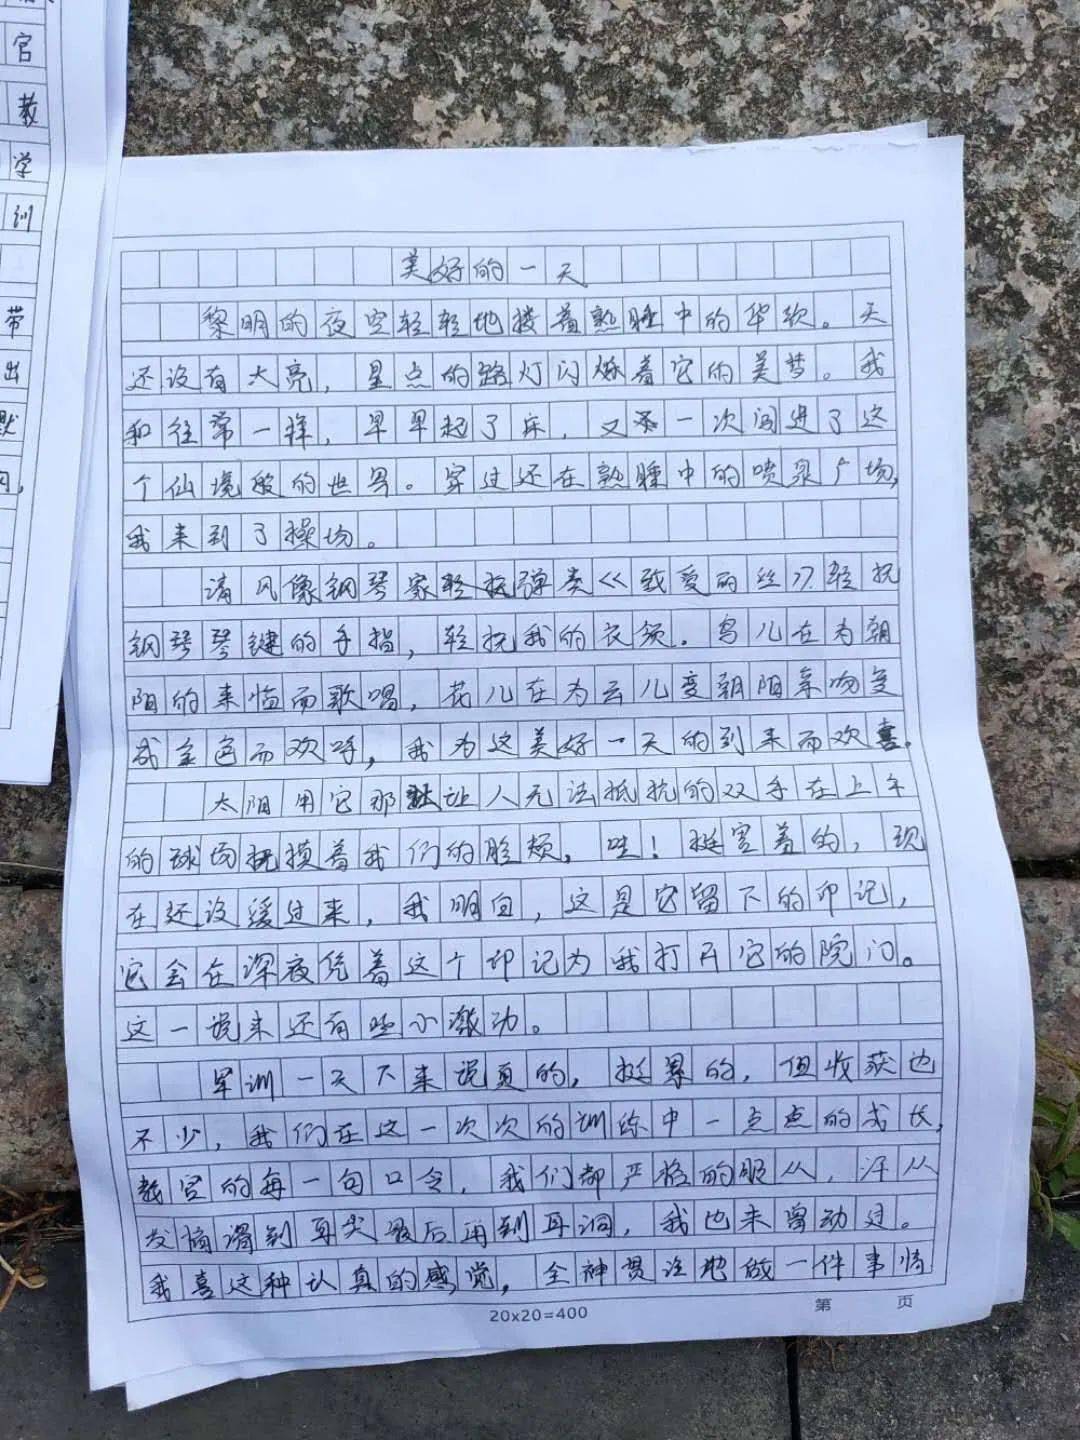 官
教
学
训
带
出
默
美好的一天
黎明的夜空轻轻地搂着熟睡中的华软。天
还没有大亮，星点的路灯闪烁着它的美梦。我
和往常一样，早早起了床，又一次闯进了这
个仙境般的世界。穿过还在熟睡中的喷泉广场，
我来到了操场。
清风像钢琴家弹奏《致爱丽丝》轻抚
钢琴琴键的手指，轻抚我的衣领。鸟儿在为朝
阳的来临而歌唱，花儿在为云儿变朝阳亲吻变
成金色而欢呼，我为这美好一天的到来而欢喜。
太阳用它那让人无法抵抗的双手在上午
的球场抚摸着我们的脸颊，哇！挺害羞的，现
在还没缓过来，我明白，这是它留下的印记，
它会在深夜凭着这个印记为我打开它的院门。
这一说来还有些小激动。
军训一天下来说真的，挺累的，但收获也
不少，我们在这一次次的训练中一点点的成长，
教官的每一句口令，我们都严格的服从，汗从
发梢滑到耳尖最后再到耳洞，我也未曾动过。
我喜这种认真的感觉，全神贯注地做一件事情
20×20=400
第 页